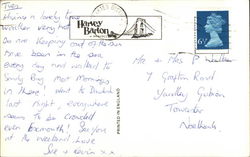 Tues
Having a lovely time
weather very hot
so are keeping out of the sun
have been in the sea
every day and walked to
Sandy Bay most mornings
in there! Went to
last night, everywhere
seems to be crowded
even Exmouth! See you
at the weekend Love
Sue & Kevin xx
Harvey
Barton
PRINTED IN ENGLAND
6½P
Mr & Mrs P
7 Grafton Road
Yardley Gobion
Towcester
Northants.